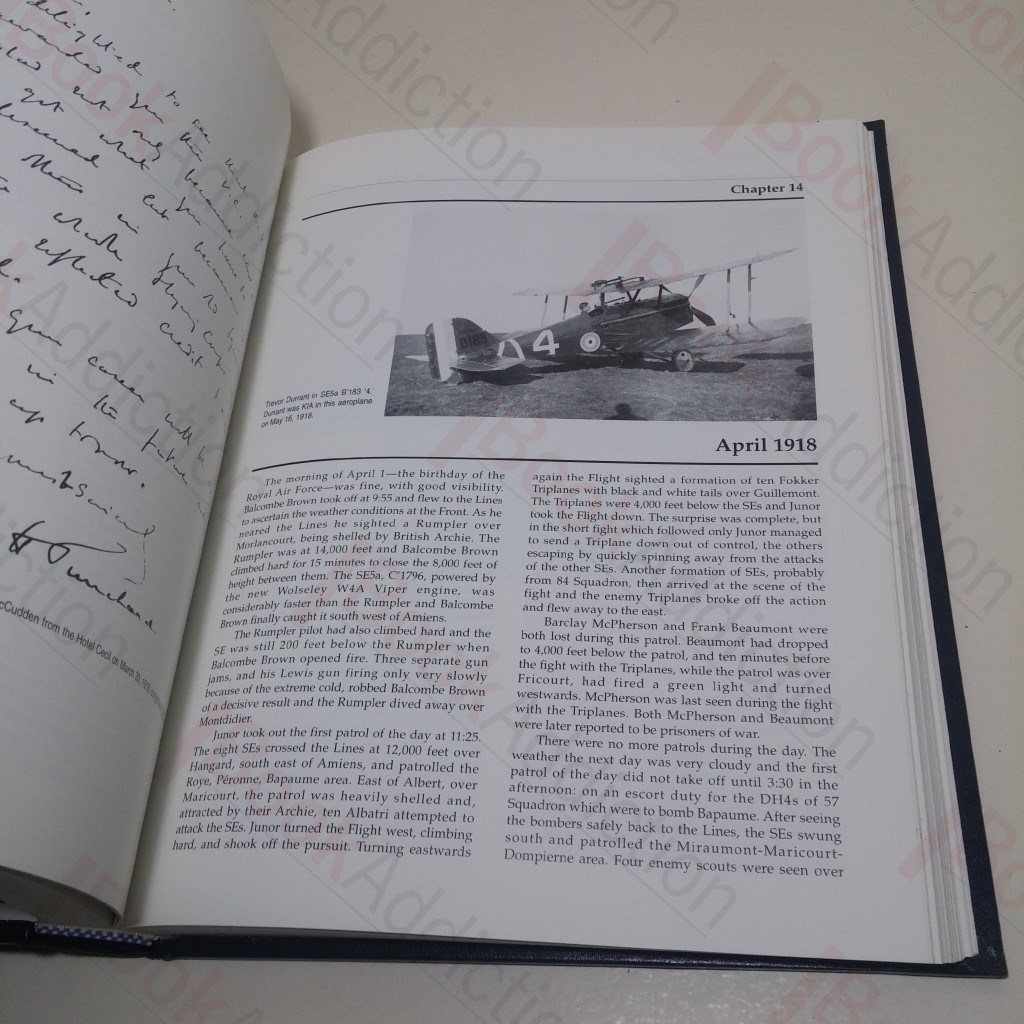 delighted to see
Chapter 14
B183
4
Trevor Durrant in SE5a B'183 '4.'
Durrant was KIA in this aeroplane
on May 16, 1918.
April 1918
The morning of April 1—the birthday of the
Royal Air Force—was fine, with good visibility.
Balcombe Brown took off at 9:55 and flew to the Lines
to ascertain the weather conditions at the Front. As he
neared the Lines he sighted a Rumpler over
Morlancourt, being shelled by British Archie. The
Rumpler was at 14,000 feet and Balcombe Brown
climbed hard for 15 minutes to close the 8,000 feet of
height between them. The SE5a, C'1796, powered by
the new Wolseley W4A Viper engine, was
considerably faster than the Rumpler and Balcombe
Brown finally caught it south west of Amiens.
The Rumpler pilot had also climbed hard and the
SE was still 200 feet below the Rumpler when
Balcombe Brown opened fire. Three separate gun
jams, and his Lewis gun firing only very slowly
because of the extreme cold, robbed Balcombe Brown
of a decisive result and the Rumpler dived away over
Montdidier.
Junor took out the first patrol of the day at 11:25.
The eight SEs crossed the Lines at 12,000 feet over
Hangard, south east of Amiens, and patrolled the
Roye, Péronne, Bapaume area. East of Albert, over
Maricourt, the patrol was heavily shelled and,
attracted by their Archie, ten Albatri attempted to
attack the SEs. Junor turned the Flight west, climbing
hard, and shook off the pursuit. Turning eastwards
again the Flight sighted a formation of ten Fokker
Triplanes with black and white tails over Guillemont.
The Triplanes were 4,000 feet below the SEs and Junor
took the Flight down. The surprise was complete, but
in the short fight which followed only Junor managed
to send a Triplane down out of control, the others
escaping by quickly spinning away from the attacks
of the other SEs. Another formation of SEs, probably
from 84 Squadron, then arrived at the scene of the
fight and the enemy Triplanes broke off the action
and flew away to the east.
Barclay McPherson and Frank Beaumont were
both lost during this patrol. Beaumont had dropped
to 4,000 feet below the patrol, and ten minutes before
the fight with the Triplanes, while the patrol was over
Fricourt, had fired a green light and turned
westwards. McPherson was last seen during the fight
with the Triplanes. Both McPherson and Beaumont
were later reported to be prisoners of war.
There were no more patrols during the day. The
weather the next day was very cloudy and the first
patrol of the day did not take off until 3:30 in the
afternoon: on an escort duty for the DH4s of 57
Squadron which were to bomb Bapaume. After seeing
the bombers safely back to the Lines, the SEs swung
south and patrolled the Miraumont-Maricourt-
Dompierne area. Four enemy scouts were seen over
cCudden from the Hotel Cecil on March 30, 1918,
Book Addiction